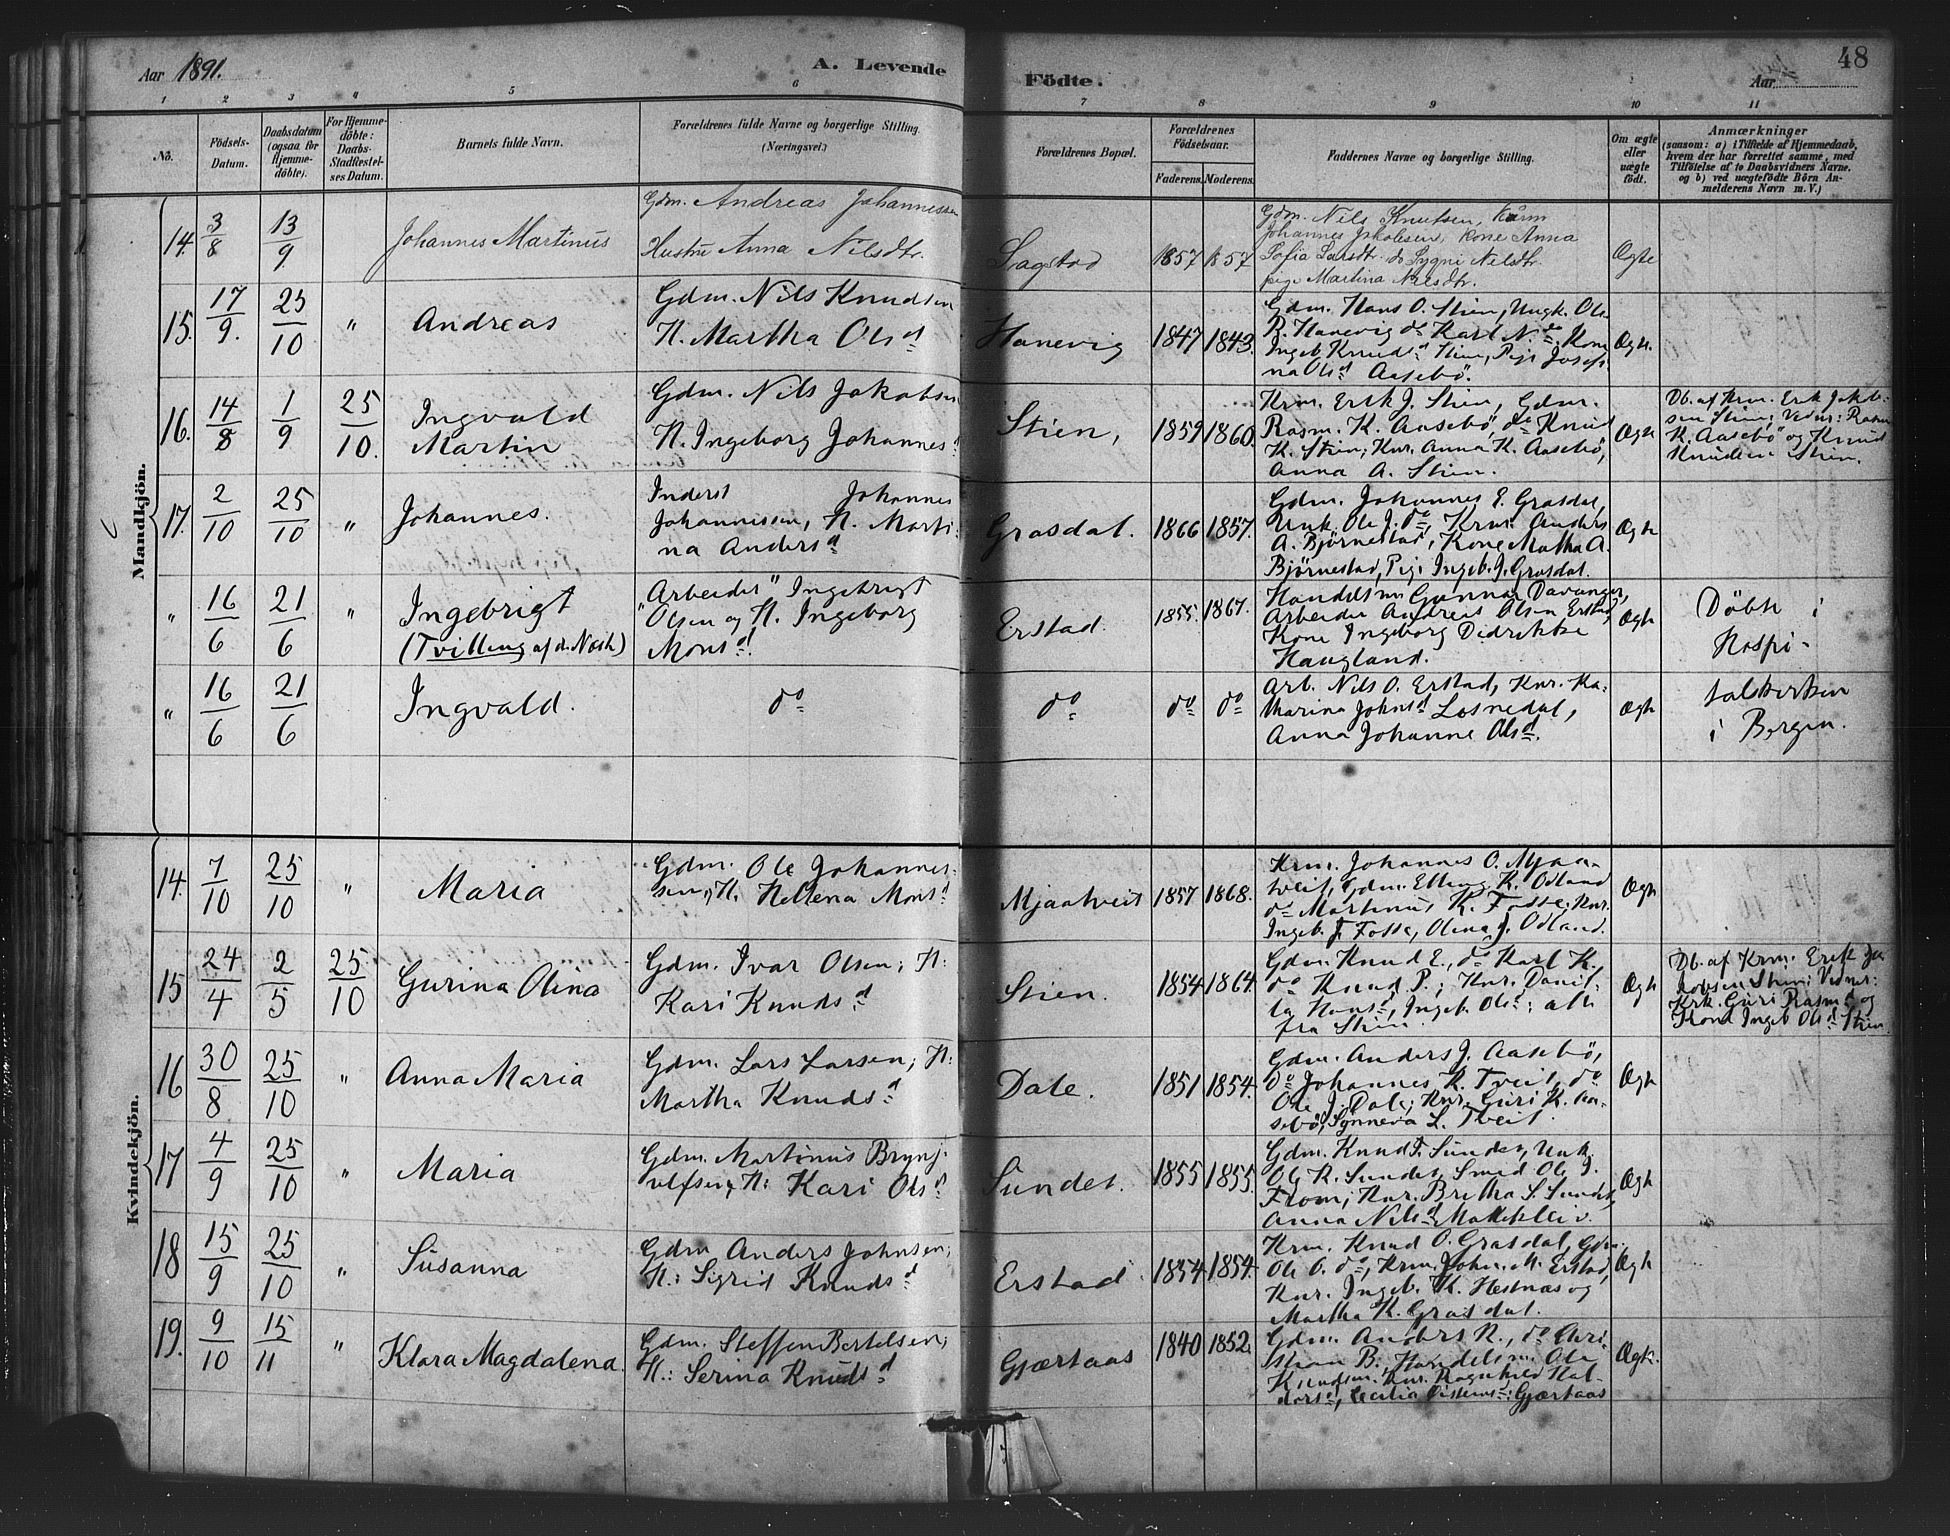 Aar 1891.
A. Levende
Födte.
Aar
48
1 2 3 4 5 6 7 8 9 10 11
No.
Födsels-
Datum.
Daabsdatum
(ogsaa for
Hjemme-
döbte).
For Hjemme-
döbte:
Daabs-
Stadfæstel-
ses Datum.
Barnets fulde Navn.
Forældrenes fulde Navne og borgerlige Stilling.
(Næringsvei.)
Forældrenes Bopæl.
Forældrenes
Födselsaar.
Faderens. Moderens.
Faddernes Navne og borgerlige Stilling.
Om ægte
eller
uægte
födt.
Anmærkninger
(saasom: a) i Tilfælde af Hjemmedaab,
hvem der har forrettet samme, med
Tilföielse af to Daabsvidners Navne.
og b) ved uægtefödte Börn An-
melderens Navn m. V.)
Mandkjön.
14. 3/8 13/9 Johannes Martinus
Gdm. Andreas Johannessen
Hustru Anna Nilsdtr.
Sagstad 1857 1857
Gdm. Nils Knutsen,
Johannes Jakobsen, Kone Anna
Sofia Larsdtr. do Sygni Nilsdtr.
pige Martina Nilsdtr.
Ægte
15. 17/9. 25/10 " Andreas
Gdm. Nils Knudsen
H. Martha Olsd
Hanevig 1847 1843.
Gdm. Hans O. Stien, Ungk. Ole
R. Hanevig do Karl N. do, Kone
Ingeb. Knudsd Stien, Pige Josefi-
na Olsd Aasebö.
Ægte
16. 14/8 1/9 25/10. Ingvald
Martin
Gdm. Nils Jakobsen
H. Ingeborg Johannesd
Stien, 1859 1860.
Krm. Erik J. Stien, Gdm.
Rasm. K. Aasebö, do Knud
K. Stien; Knr. Anna K. Aasebö,
Anna A. Stien.
Ægte
Db. af Krm. Erik Jakob-
sen Stien; Vidnr: Rasm.
K. Aasebö og Knud
Knudsen Stien.
17. 2/10 25/10 " Johannes.
Inderst Johannes
Johannessen, H. Marti-
na Andersd
Grasdal. 1866 1857.
Gdm. Johannes E. Grasdal,
Unk. Ole J. do, Krm. Anders
A. Björnestad, Kone Martha A.
Björnestad, Pige Ingeb. J. Grasdal.
Ægte
" 16/6 21/6 " Ingebrigt
(Tvilling af d. Næste)
"Arbeider" Ingebrigt
Olsen og H. Ingeborg
Monsd.
Erstad. 1855. 1867.
Handelsm Gunnar Davanger,
Arbeider Andreas Olsen Erstad,
Kone Ingeborg Didrikke
Haugland.
Ægte
Döbte i
Hospi-
" 16/6 21/6 Ingvald.
do
do do do
Arb. Nils O. Erstad, Knr. Ka-
tharina Johnsd Losnedal,
Anna Johanne Olsd.
Ægte
talskirken
i Bergen.
Kvindekjön.
14. 7/10 25/10 " Maria
Gdm. Ole Johannes-
sen, H. Hellena Monsd
Mjaatveit 1857 1868.
Krm. Johannes O. Mjaa-
tveit, Gdm. Elling K. Odland
do Martinus K. Fosse, Knr.
Ingeb. J. Fosse, Olina J. Odland.
Ægte
15 24/4 2/5 25/10 Gurina Olina
Gdm. Ivar Olsen; H:
Kari Knudsd
Stien. 1854 1864.
Gdm. Knud E., do Karl K.
do Knud P.; Knr.
Hansd, Ingeb. Olsd: alle
fra Stien.
Ægte
Db. af Krm. Erik Ja-
kobsen Stien; Vidner:
Krk. Guri Rasmd og
Kone Ingeb Olsd Stien.
16 30/8 25/10 " Anna Maria
Gdm. Lars Larsen; H:
Martha Knudsd
Dale. 1851 1854.
Gdm. Anders J. Aasebö,
do Johannes K. Tveit, do
Ole J. Dale; Knr. Guri K. Aa-
sebö, Synneva L. Tveit.
Ægte
17 4/9 25/10 " Maria
Gdm. Martinus Brynj-
ulfsen, H: Kari Olsd
Sundet. 1855 1855.
Gdm. Knud T. Sundet, Unk.
Ole K. Sundet, Smed Ole J.
Flom; Knr. Britha S. Sundet,
Anna Nilsd
Ægte
18 15/9 25/10 " Susanna
Gdm Anders Johnsen;
H: Sigrid Knudsd
Erstad 1854 1854.
Krm. Knud O. Grasdal, Gdm.
Ole O. do, Krm. John M. Erstad,
Knr. Ingeb. K. Hestnæs og
Martha K. Grasdal.
Ægte
19. 9/10 15/11 " Klara Magdalena.
Gdm. Steffen Bertelsen;
H.: Serina Knudsd
Gjærtaas 1840 1852.
Gdm. Anders N., do Chri-
stian B., Handelsm. Ole
Knudsen. Knr. Ragnhild Hal-
dorsd, Cecilia : Gjærtaas
Ægte.